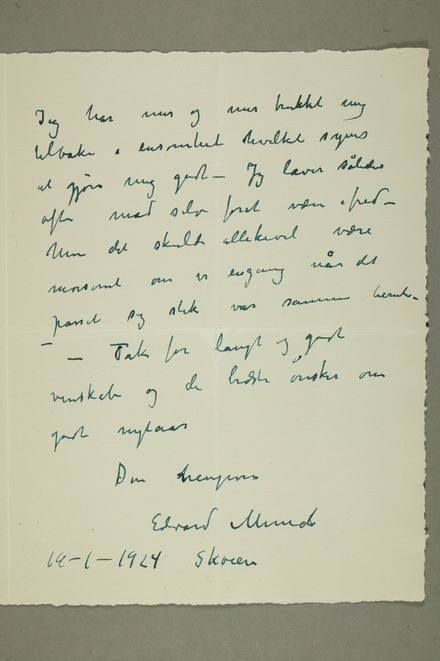 Jeg har mer og mer trukket mig
tilbake i ensomhet hvilket synes
at gjøre mig godt – Jeg laver således
ofte mad selv forat være i fred –
Men det skulde allikevel være
morsomt om vi engang når det
passet sig slik var sammen
– – Tak for langt og godt
venskab og de bedste ønsker om
godt nytaar
Din hengivne
Edvard Munch
19–1–1924 Skøien